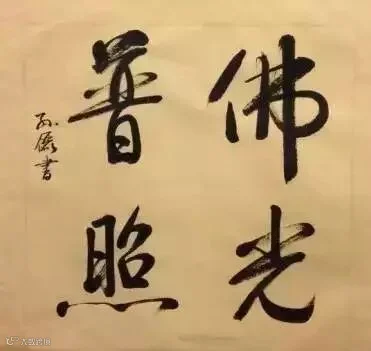 佛光
普照